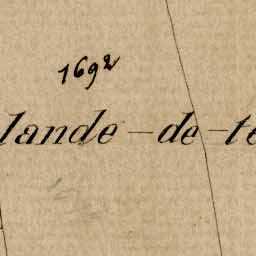 1692
lande-de-te